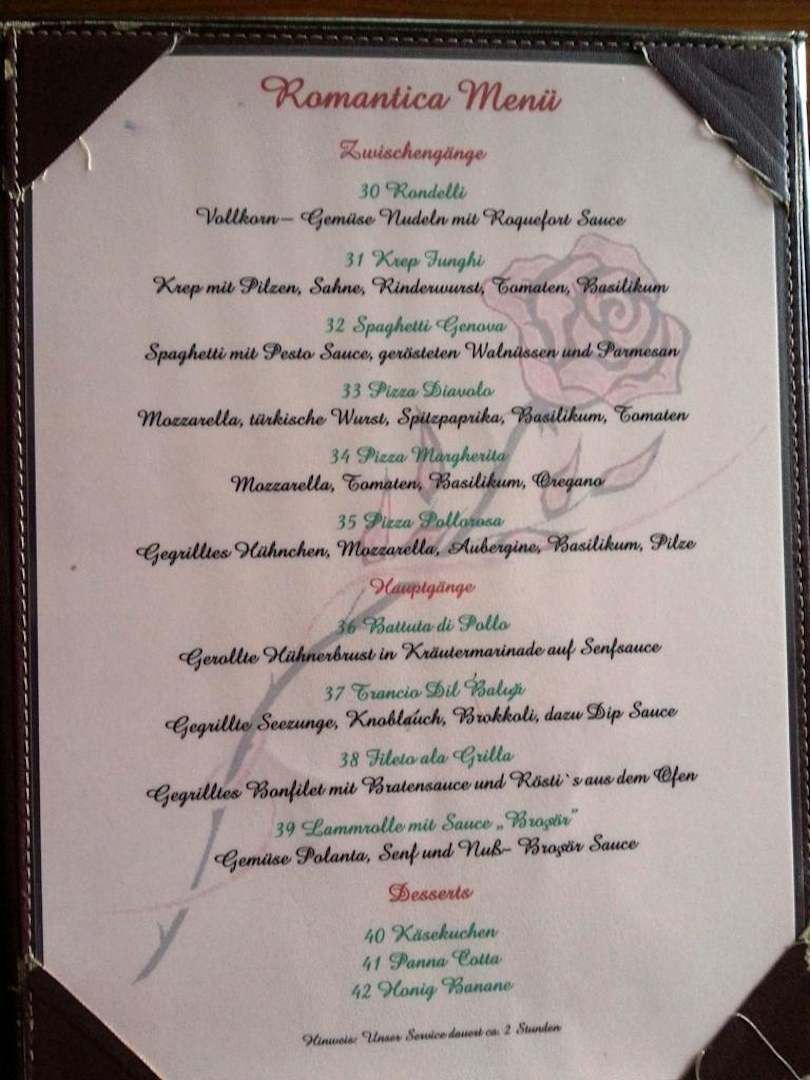 Romantica Menü
Zwischengänge
30 Rondelli
Vollkorn– Gemüse Nudeln mit Roquefort Sauce
31 Krep Funghi
Krep mit Pilzen, Sahne, Rinderwurst, Tomaten, Basilikum
32 Spaghetti Genova
Spaghetti mit Pesto Sauce, gerösteten Walnüssen und Parmesan
33 Pizza Diavolo
Mozzarella, türkische Wurst, Spitzpaprika, Basilikum, Tomaten
34 Pizza Margherita
Mozzarella, Tomaten, Basilikum, Oregano
35 Pizza Pollorosa
Gegrilltes Hühnchen, Mozzarella, Aubergine, Basilikum, Pilze
Hauptgänge
36 Battuta di Pollo
Gerollte Hühnerbrust in Kräutermarinade auf Senfsauce
37 Trancio Dil
Gegrillte Seezunge, Knoblauch, Brokkoli, dazu Dip Sauce
38 Fileto ala Grilla
Gegrilltes Bonfilet mit Bratensauce und Rösti`s aus dem Ofen
39 Lammrolle mit Sauce „Broşör"
Gemüse Polanta, Senf und Nuß– Broşör Sauce
Desserts
40 Käsekuchen
41 Panna Cotta
42 Honig Banane
Hinweis: Unser Service dauert ca. 2 Stunden